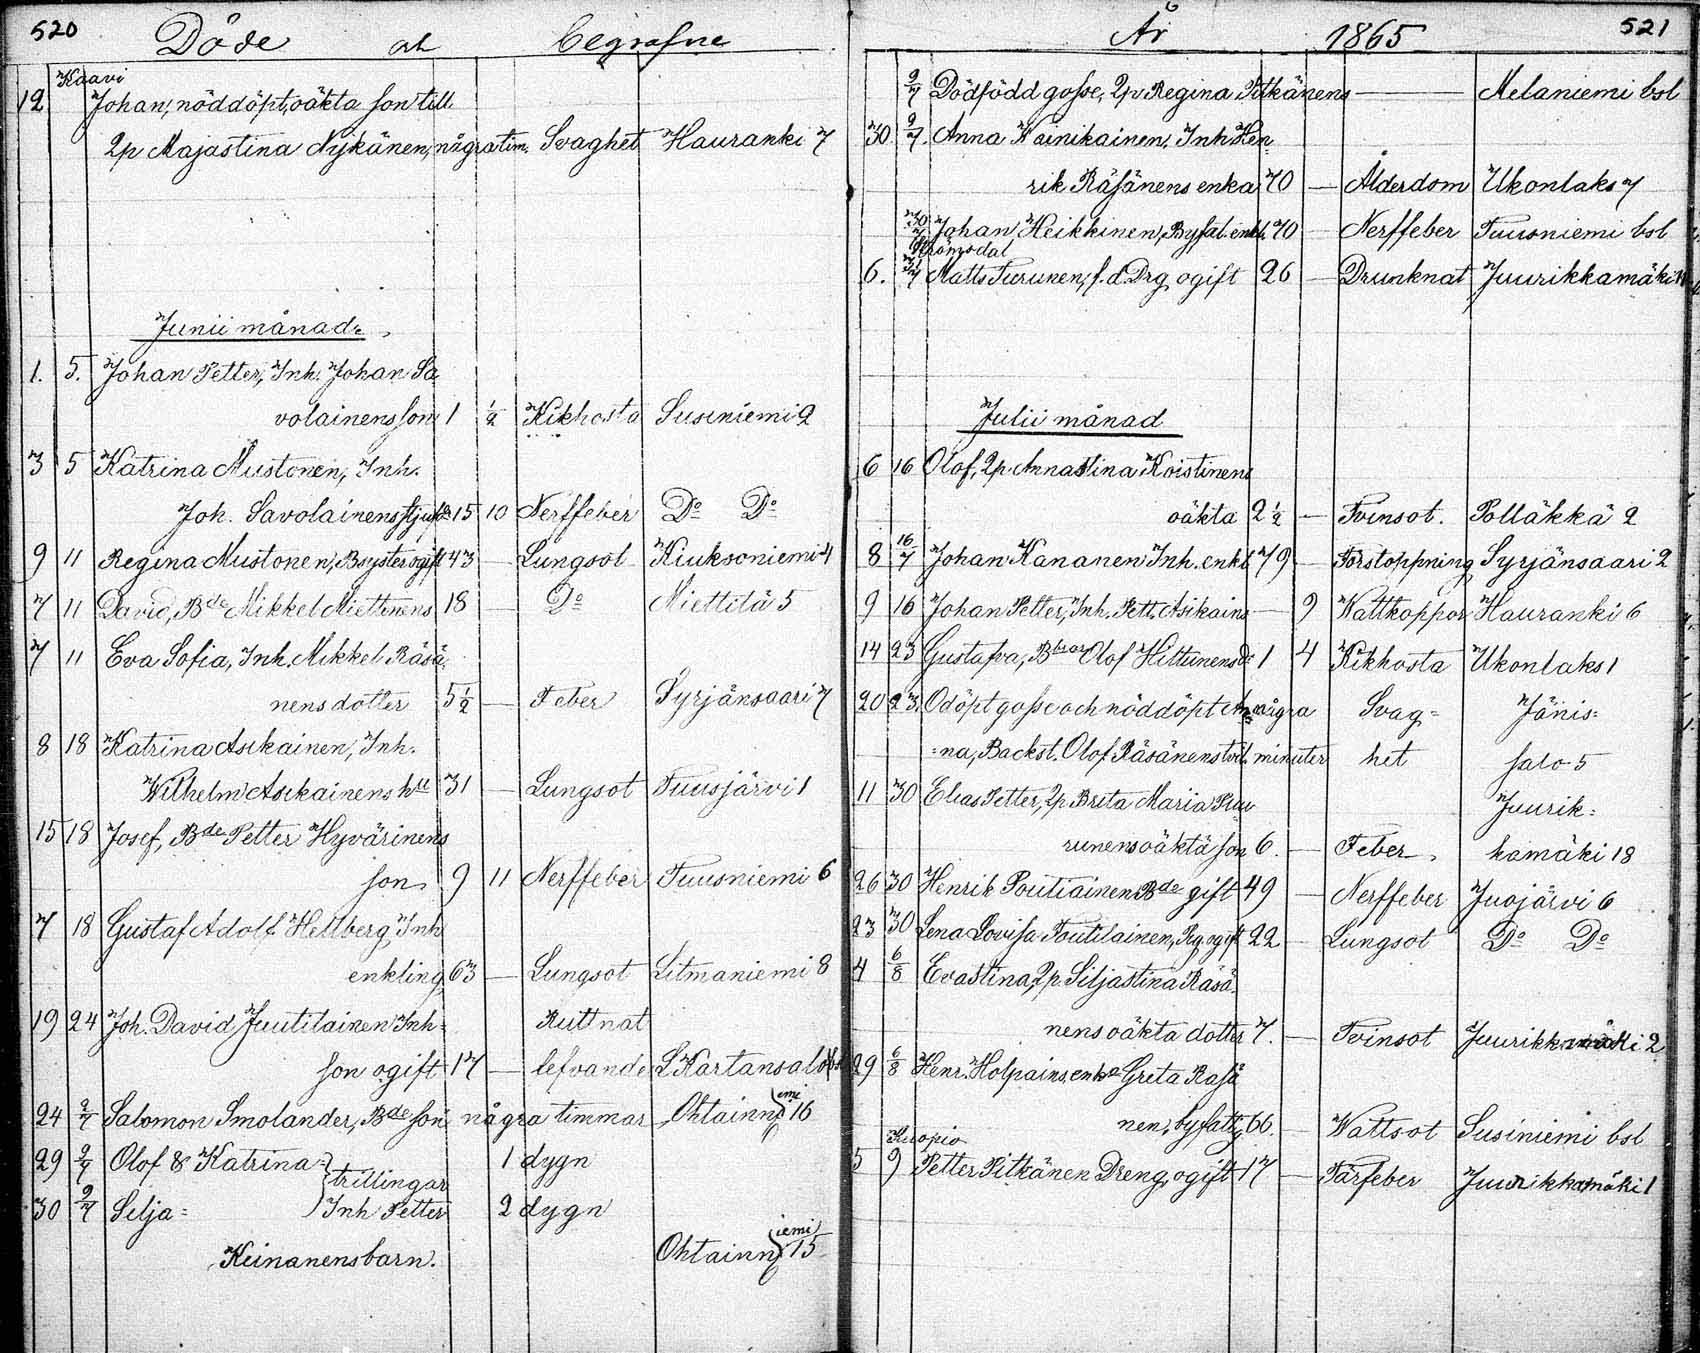 520
Döde och begrafne
Kaavi
12 Johan, nöddöpt, oäkta son till
2p Majastina Nykänen, några tim. Svaghet Hauranki 7
Junii månad.
1. 5. Johan Petter, Inh. Johan Sa
volainens son 1 1/2 Kikhosta Susiniemi 2
3 5 Katrina Mustonen, Inh.
Joh. Savolainens 15 10 Nerffeber Do Do
9 11 Regina Mustonen, Bsyster ogift 43 — Lungsot Kiuksoniemi 4
7 11 David, Bde Mikkel Miettinens 18 — Do Miettilä 5
7 11 Eva Sofia, Inh. Mikkel Räsä
nens dotter 5 1/2 — Feber Syrjänsaari 7
8 18 Katrina Asikainen, Inh.
Wilhelm Asikainens hu 31 — Lungsot Tuusjärvi 1
15 18 Josef, Bde Petter Hyvärinens
son 9 11 Nerffeber Tuusniemi 6
7 18 Gustaf Adolf Hellberg, Inh
enkling 63 — Lungsot Litmaniemi 8
19 24 Joh. David Juutilainen Inh=
Ruttnat
son ogift 17 — lefvande L. Kartansalo
24 2/7 Salomon Smolander, Bde son några timmar Ohtainniemi 16
29 2/7 Olof & Katrina = 1 dygn
trillingar
30 2/7 Selja = Inh Petter 2 dygn
Keinanens barn. Ohtainniemi 15
År 1865
521
9/7 Dödfödd gosse, 2p Regina Pitkänens — Melaniemi bsl
30 9/7. Anna Kainikainen, Inh Hen=
rik Räsänens enka 70 — Ålderdom Ukonlaks 7
30/7 Johan Heikkinen, Byfat. enkl. 70 — Nerffeber Tuusniemi bsl
Strömsdal
6. 31/7 Matts Turunen, f.d. Drg ogift 26 — Drunknat Juurikkamäki
Julii månad
6 16 Olof, 2p Annastina Koistinens
oäkta 2 1/2 — Tvinsot. Polläkkä 2
8 16/7 Johan Kananen Inh. enkl 79 — Förstoppning Syrjänsaari 2
9 16 Johan Petter, Inh. Pett. Asikains — 9 Wattkoppor Hauranki 6
14 23 Gustafva, Bbror Olof Hittunens dr 1 4 Kikhosta Ukonlaks 1
20 23. Odöpt gosse och nöddöpt An= några Svag= Jänis=
=na, Backst. Olof Räsänens tvil. minuter het salo 5
11 30 Elias Petter, 2p Brita Maria Puu Juurik=
runens oäkta son 6. — Feber. kamäki 18
26 30 Henrik Poutiainen Bde gift 49 — Nerffeber Juojärvi 6
23 30 Lena Lovisa Poutilainen, Pig. ogift 22 — Lungsot Do Do
4 6/8 Evastina, 2p Siljastina Räsä
nens oäkta dotter 7. — Tvinsot Juurikkamäki 2
29 6/8 Henr. Holpains enka Greta Räsä
nen, byfattg 66. — Wattsot Susiniemi bsl
Kuopio
5 9 Petter Pitkänen Dreng, ogift 17 — Tärfeber Juurikkamäki 1